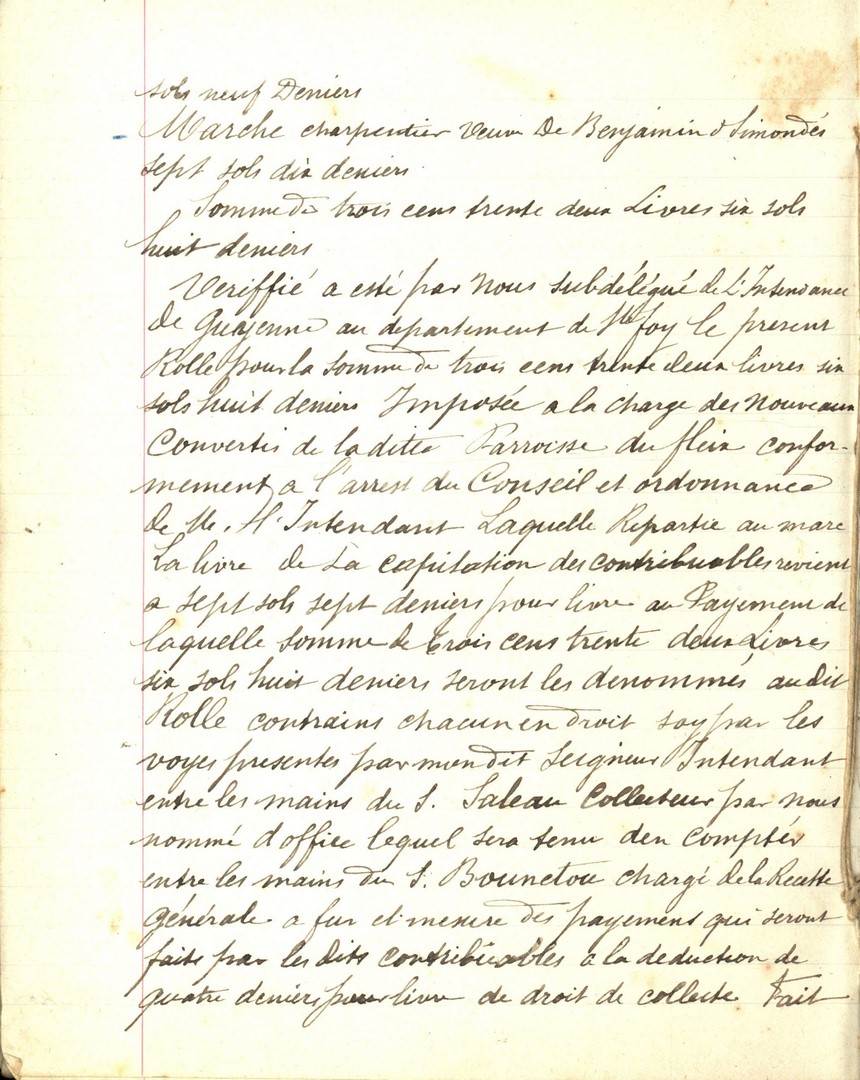 sols neuf Deniers
Marche charpentier veuve De Benjamin d Simondès
sept sols dix deniers
Somme de trois cens trente deux Livres six sols
huit deniers
Veriffié a esté par Nous subdélégué de L'Intendance
De Guayenne au departement de Ste foy le present
Rolle pour la somme de trois cens trente deux livres six
sols huit deniers Imposée a la charge des Nouveaux
Convertis de la ditte Parroisse du fleix confor-
mement a l'arrest du Conseil et ordonnance
de M. l'Intendant Laquelle Repartie au marc
La livre de La capitation des contribuables revient
a sept sols sept deniers pour livre au Payement de
laquelle somme de trois cens trente deux Livres
six sols huit deniers seront les denommés audit
Rolle contrains chacun en droit soy par les
voyes presentes par mondit Seigneur Intendant
entre les mains du S. Saleau Collecteur par nous
nommé d'office lequel sera tenu den compter
entre les mains du S. Bounetou chargé de la Recette
Générale a fur et mesure des payemens qui seront
faits par les dits contribuables a la deduction de
quatre deniers pour livre de droit de collecte Fait